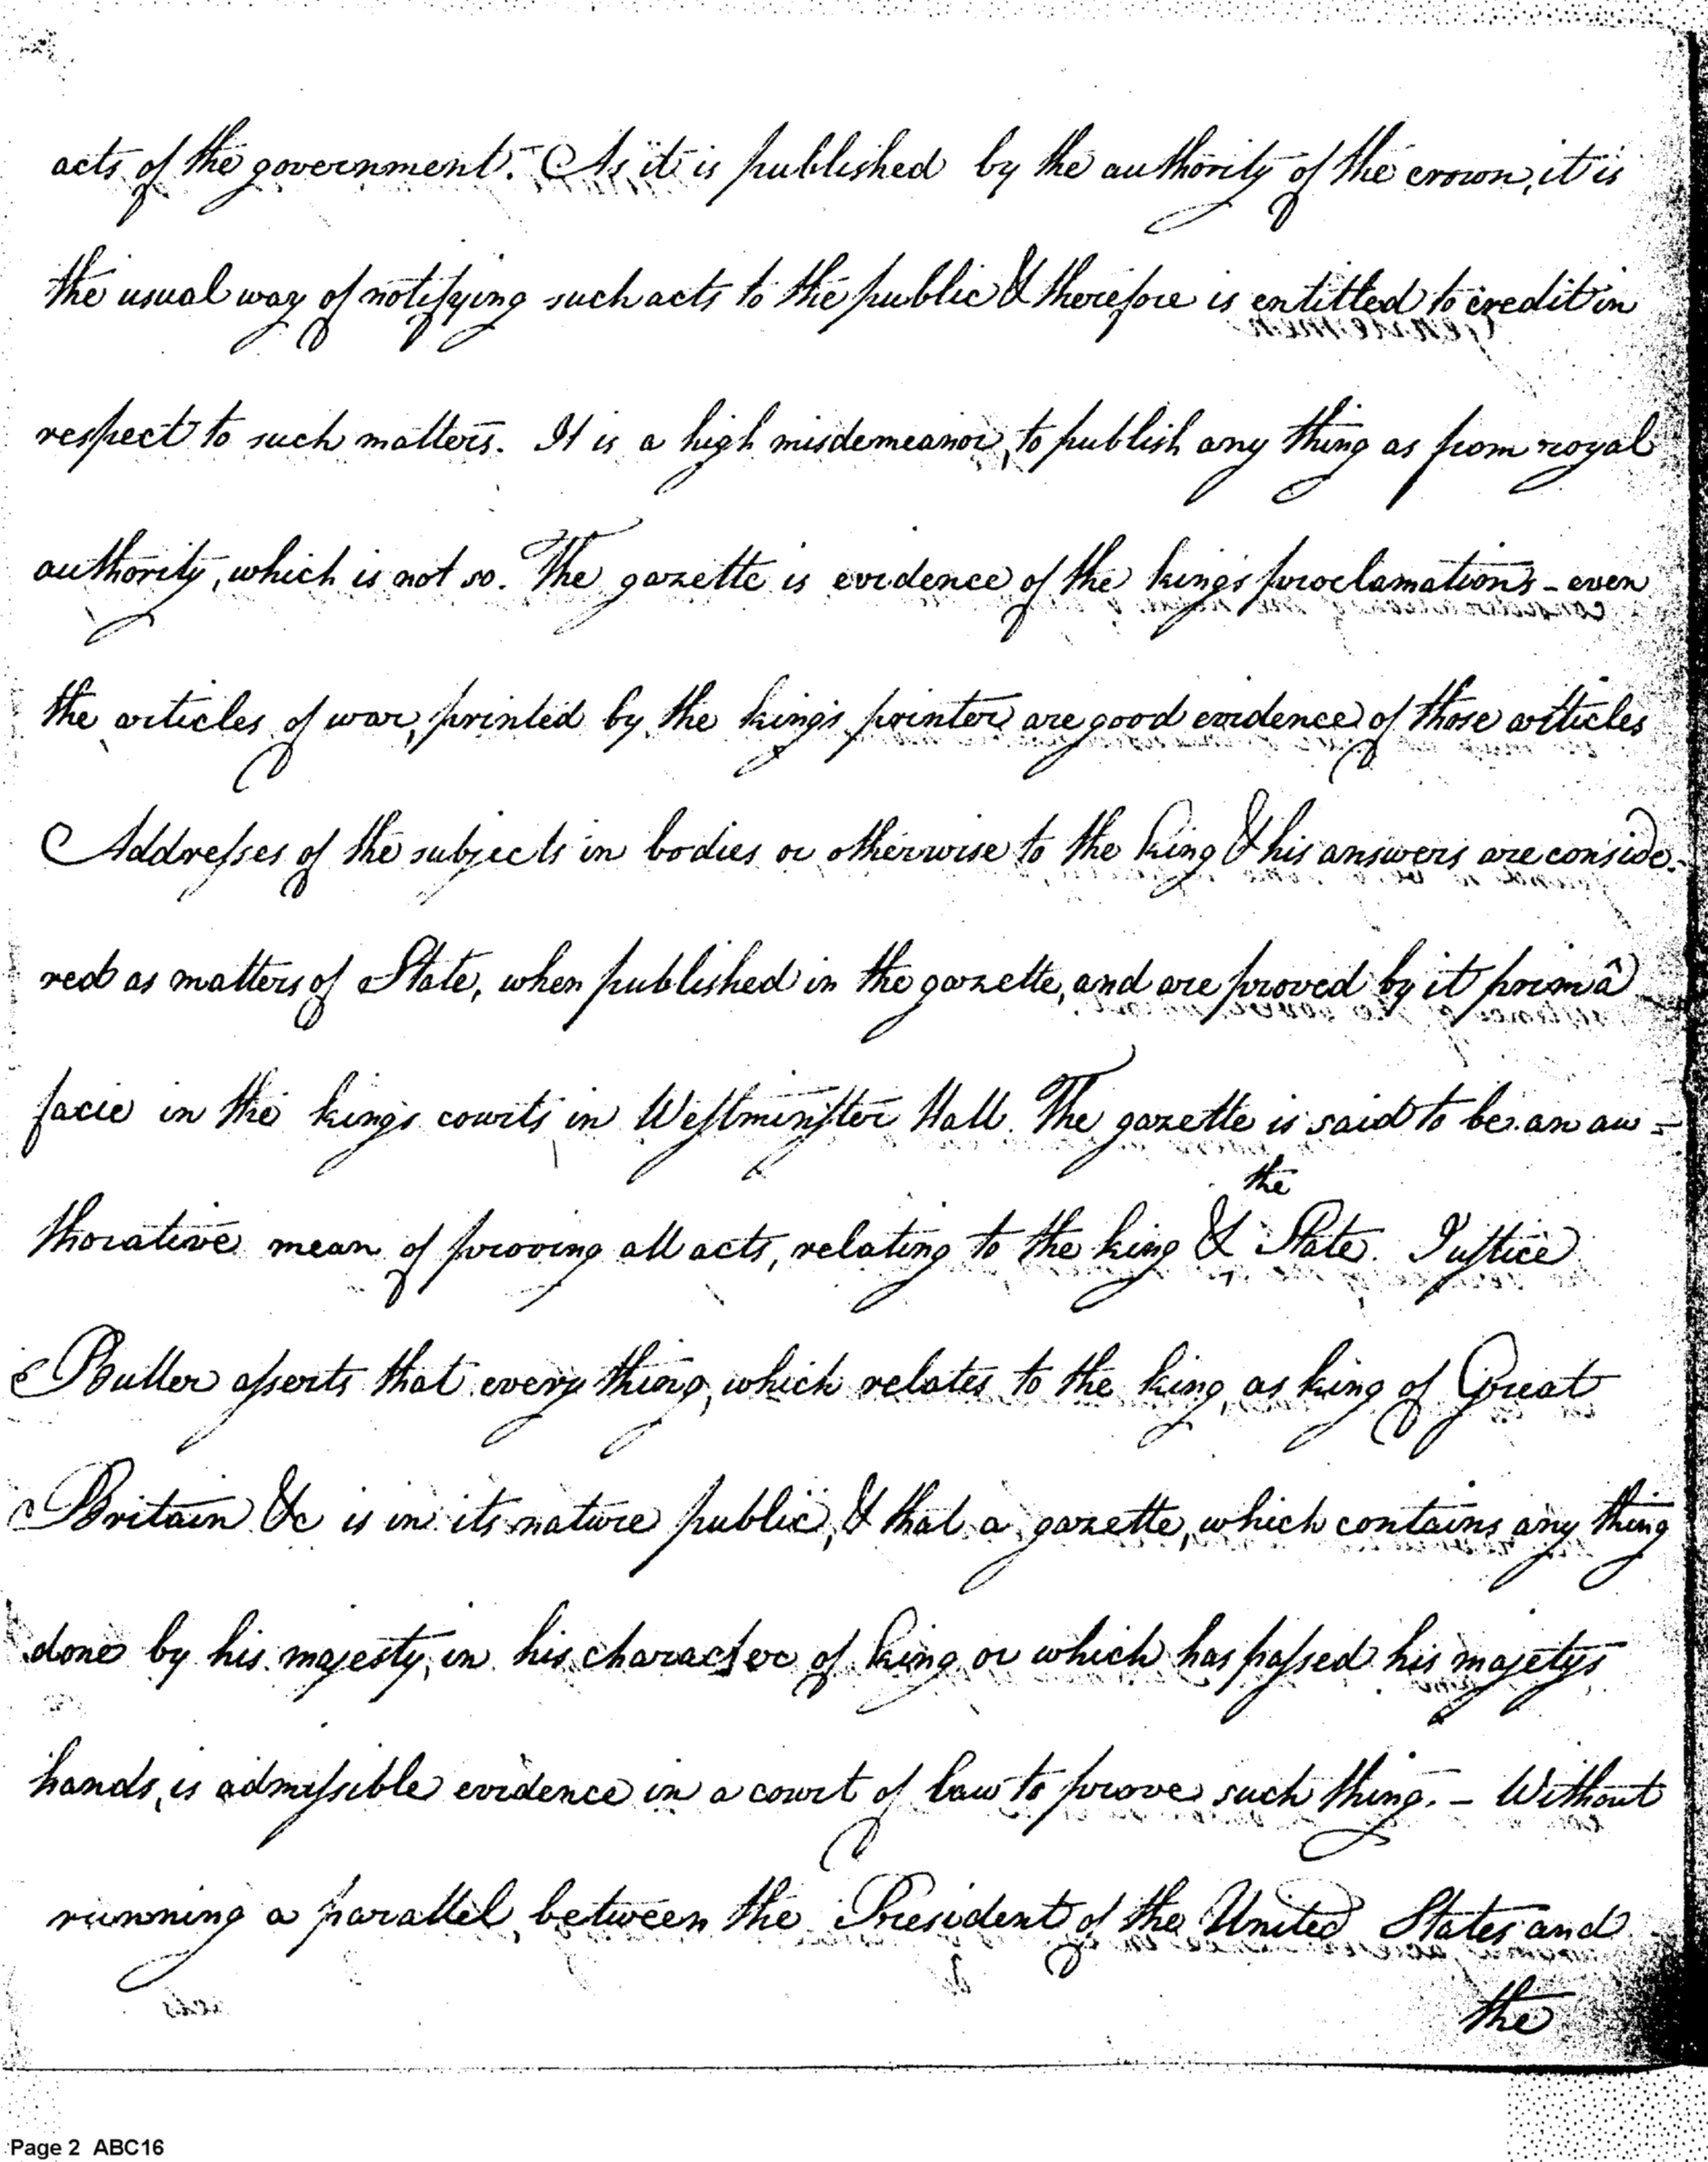 acts of the government. As it is published by the authority of the crown, it is
the usual way of notifying such acts to the public & therefore is entitled to credit in
respect to such matters. It is a high misdemeanor, to publish any thing as from royal
authority, which is not so. The gazette is evidence of the kings proclamations – even
the articles of war, printed by the king's printer are good evidence of those articles
Addresses of the subjects in bodies or otherwise to the king & his answers are conside-
red as matters of State, when published in the gazette, and are proved by it primâ
facie in the kings courts in Westminster Hall. The gazette is said to be an au-
the
thorative mean of proving all acts, relating to the king & State. Justice
Buller asserts that every thing, which relates to the king, as king of Great
Britain &c is in its nature public, & that a gazette, which contains any thing
done by his majesty, in his character of king or which has passed his majetys
hands, is admissible evidence in a court of law to prove such thing. – Without
running a parallel, between the President of the United States and
the
Page 2 ABC16